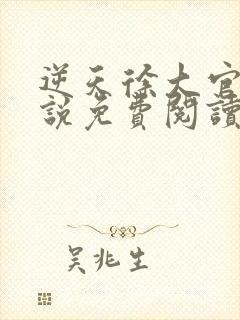 逆天徐大官
說免費閱讀
吳兆生